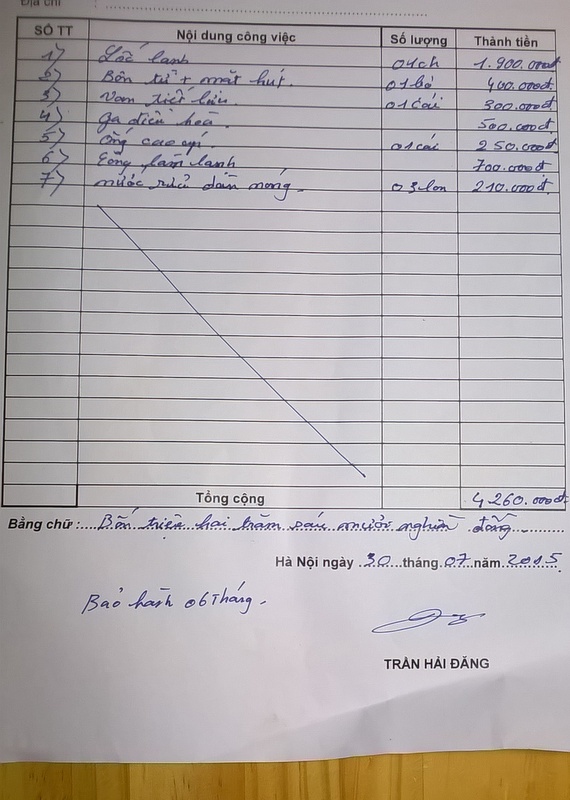 Địa chỉ :
SỐ TT Nội dung công việc Số lượng Thành tiền
1) Lốc lạnh 01ch 1.900.000đ
2) Bôn từ + mắt hút. 01 bộ 400.000đ
3) Van tiết lưu. 01 cái 300.000đ
4) Ga điều hoà. 500.000đ.
5) ống cao áp. 01 cái 250.000đ
6) Công làm lạnh 700.000đ
7) nước rửa dàn nóng. 03 lon 210.000đ
Tổng cộng 4.260.000đ
Bằng chữ: Bốn triệu hai trăm sáu mươi nghìn đồng.
Hà Nội ngày 30 tháng 07 năm 2015
Bảo hành 06 Tháng.
TRẦN HẢI ĐĂNG